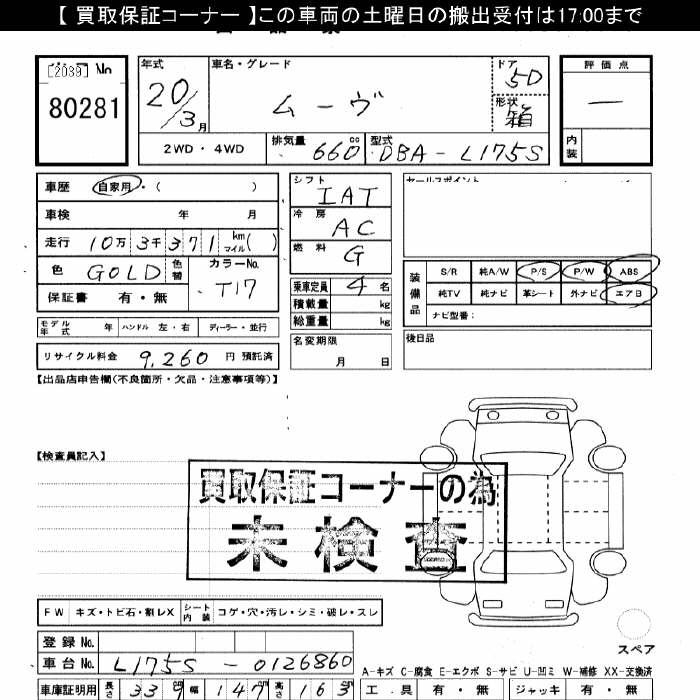 【 買取保証コーナー 】この車両の土曜日の搬出受付は17:00まで
[2039] No
80281
年式 車名・グレード ドア 評価点
20/3月 ムーヴ 5D 形状 箱 —
2WD・4WD 排気量 660cc 型式 DBA-L175S 内装
車歴 自家用・( )
車検 年 月
走行 10万3千371 km マイル( )
色 GOLD 色替 カラーNo. T17
保証書 有・無
モデル年式 年 ハンドル 左・右 ディーラー・並行
リサイクル料金 9,260 円 預託済
シフト IAT
冷房 AC
燃料 G
乗車定員 4 名
積載量 kg
総重量 kg
名変期限 月 日
セールスポイント
装備品 S/R 純A/W P/S P/W ABS
純TV 純ナビ 革シート 外ナビ エアB
ナビ型番:
後日品
【出品店申告欄(不良箇所・欠品・注意事項等)】
【検査員記入】
買取保証コーナーの為
未検査
FW キズ・トビ石・割レX シート内装 コゲ・穴・汚レ・シミ・破レ・スレ
スペア
登録 No.
車台 No. L175S-0126860
A-キズ C-腐食 E-エクボ S-サビ U-凹ミ W-補修 XX-交換済
車庫証明用 長さ 339 幅 147 高さ 163 工具 有・無 ジャッキ 有・無